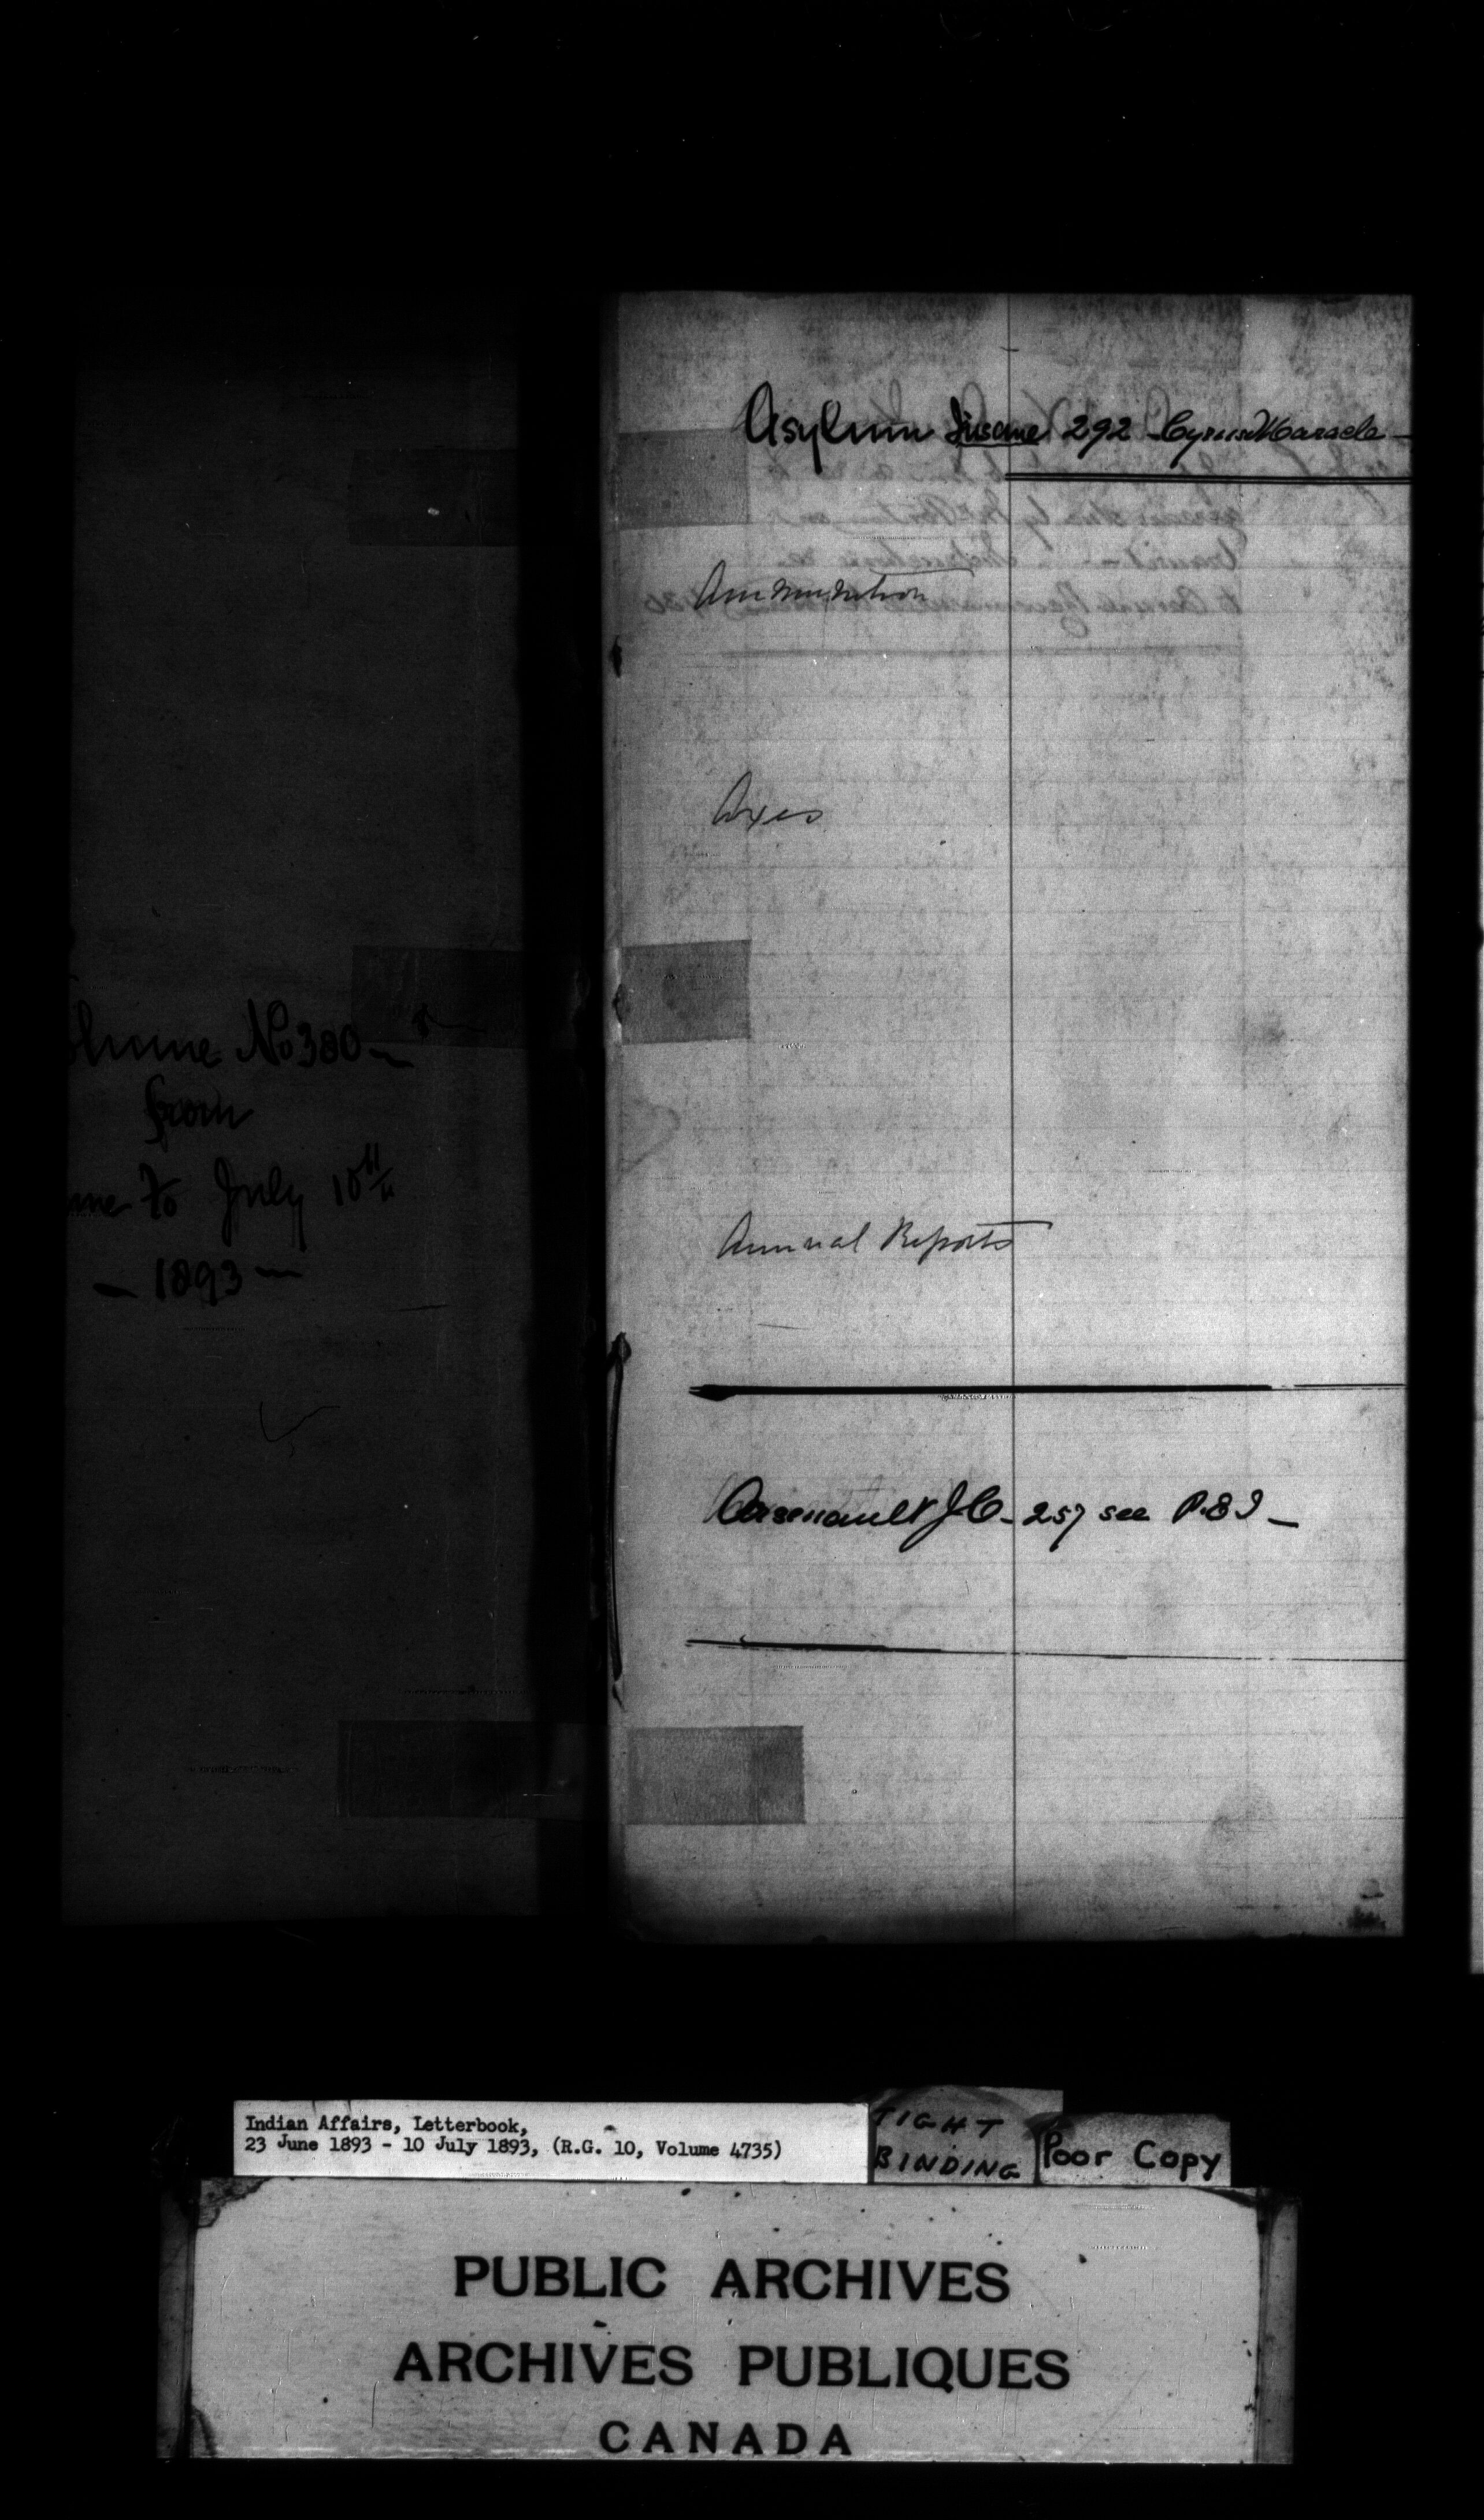 No 380 -
from
to July 10th
- 1893 -
Asylum Insane 292 Cyrus Maracle -
Ammunition
Axes
Annual Reports
Arsenault J.C. - 257 see P.E.I -
Indian Affairs, Letterbook,
23 June 1893 - 10 July 1893, (R.G. 10, Volume 4735)
TIGHT
BINDING
Poor Copy
PUBLIC ARCHIVES
ARCHIVES PUBLIQUES
CANADA